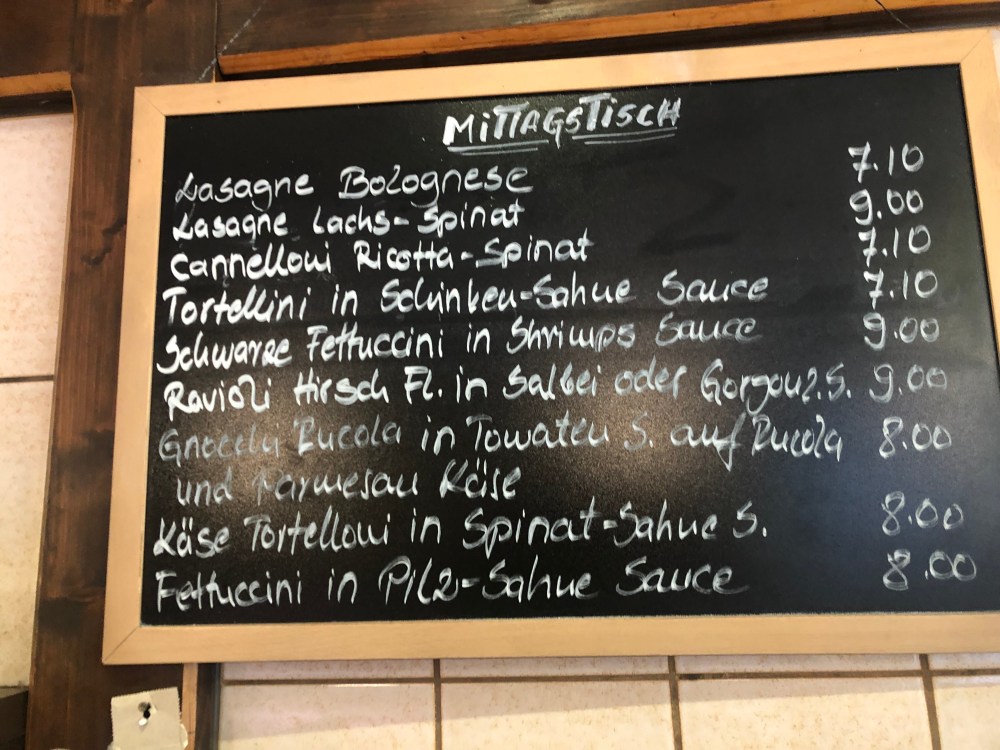 MITTAGSTISCH
Lasagne Bolognese 7.10
Lasagne Lachs-Spinat 9.00
Cannelloni Ricotta-Spinat 7.10
Tortellini in Schinken-Sahne Sauce 7.10
Schwarze Fettuccini in Shrimps Sauce 9.00
Ravioli Hirsch Fl. in Salbei oder Gorgonz.S. 9.00
Gnocchi Rucola in Tomaten S. auf Rucola 8.00
und Parmesan Käse
Käse Tortelloni in Spinat-Sahne S. 8.00
Fettuccini in Pilz-Sahne Sauce 8.00